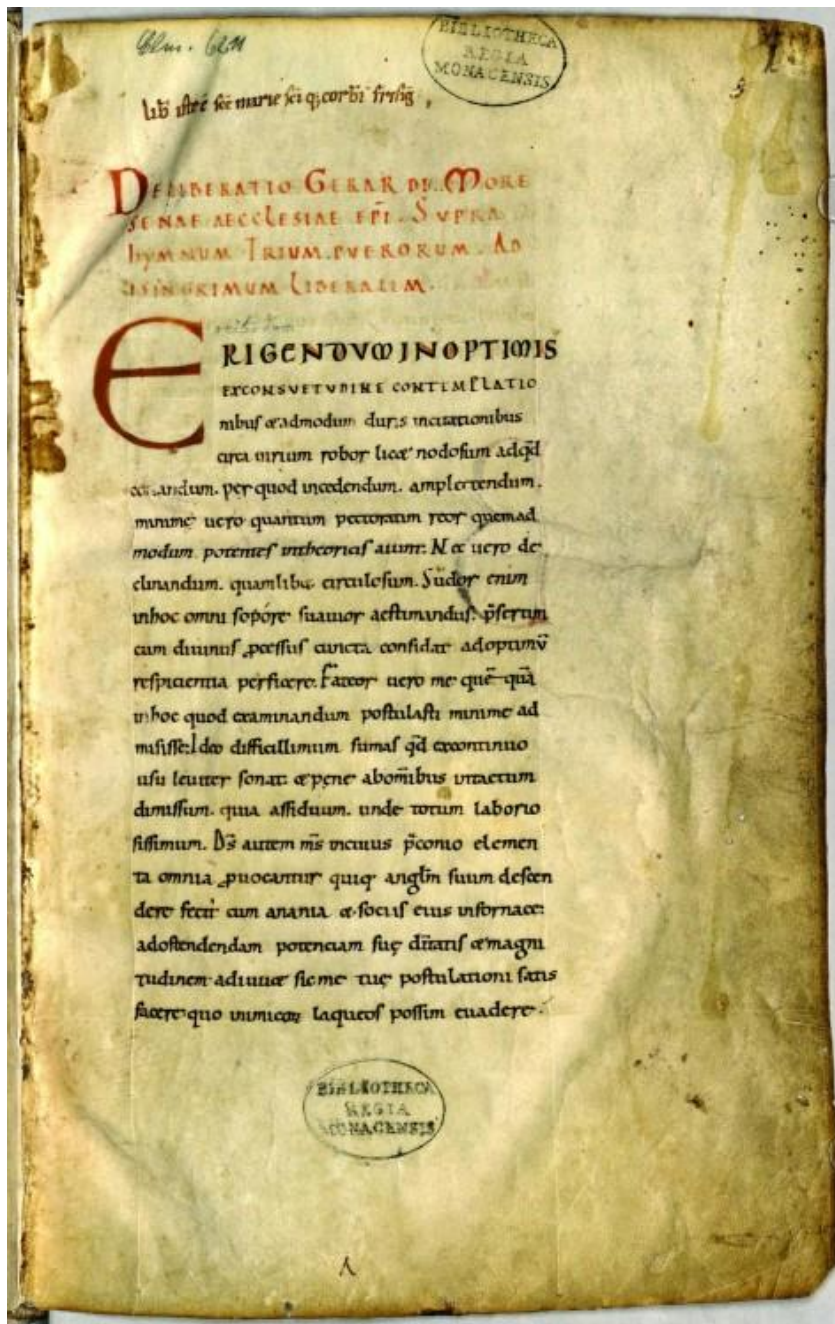 Clm. 6211
BIBLIOTHECA
REGIA
MONACENSIS
lib̄ iste ē sc̄e marie sc̄i q; corbī frisīg
DELIBERATIO GERARDI. MORE
SENAE AECCLESIAE EP̄I. SUPRA
HYMNUM TRIUM PUERORUM. AD
ISINGRIMUM LIBERALEM.
ERIGENDUM IN OPTIMIS
EX CONSUETUDINE CONTEMPLATIO
nibus & admodum duris incitationibus
circa uirium robor lic& nodosum adqd̄
andum. per quod incedendum. amplectendum.
minime uero quantum pectoratim reor quemad
modum potentes in theoricis aiunt. Nec uero de
clinandum. quamlib& circulosum. Sudor enim
in hoc omni sopore suauior aestimandus. p̄sertim
cum diuinus ꝓcessus cuncta confidat ad optimū
respicientia perficere. Fateor uero me quē quā
in hoc quod examinandum postulasti minime ad
misisse. Ideo difficillimum sumas qd̄ ex continuo
usu leuiter sonat. & pene ab om̄ibus
dimissum. quia assiduum. unde totum laborio
sissimum. Ds̄ autem ms̄ p̄conio elemen
ta omnia ꝓuocantur quiq; anglm̄ suum descen
dere fecit cum anania & sociis eius in fornace.
ad ostendendam potenciam suę & magni
tudinem adiuu& sic me tuę postulationi satis
facere quo inimicoꝝ laqueos possim euadere.
BIBLIOTHECA
REGIA
MONACENSIS